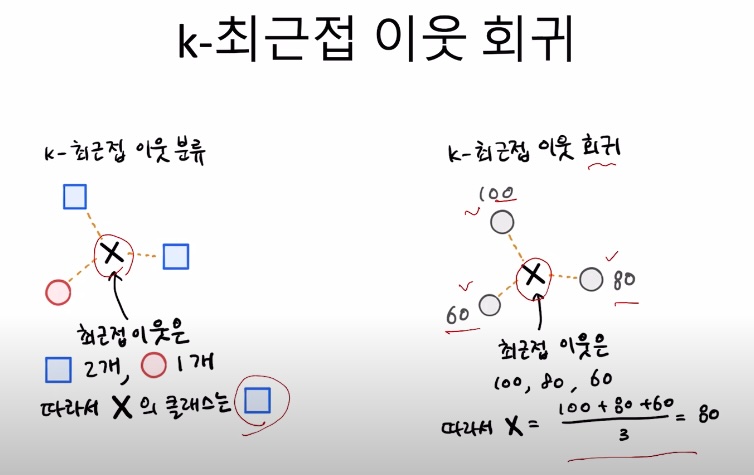 k-최근접 이웃 회귀
k-최근접 이웃 분류
X
최근접 이웃은
2개, 1개
따라서 X의 클래스는
k-최근접 이웃 회귀
100
X
80
60
최근접 이웃은
100, 80, 60
따라서 X = (100 + 80 + 60) / 3 = 80